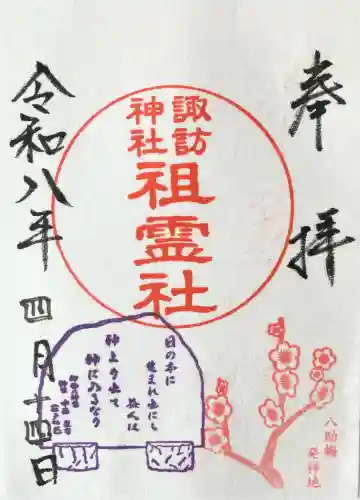 奉拝
諏訪
神社
祖霊社
令和八年四月十四日
日の本に
生まれ出にし
益人は
神より出て
神に入るなり
八助梅
発祥地